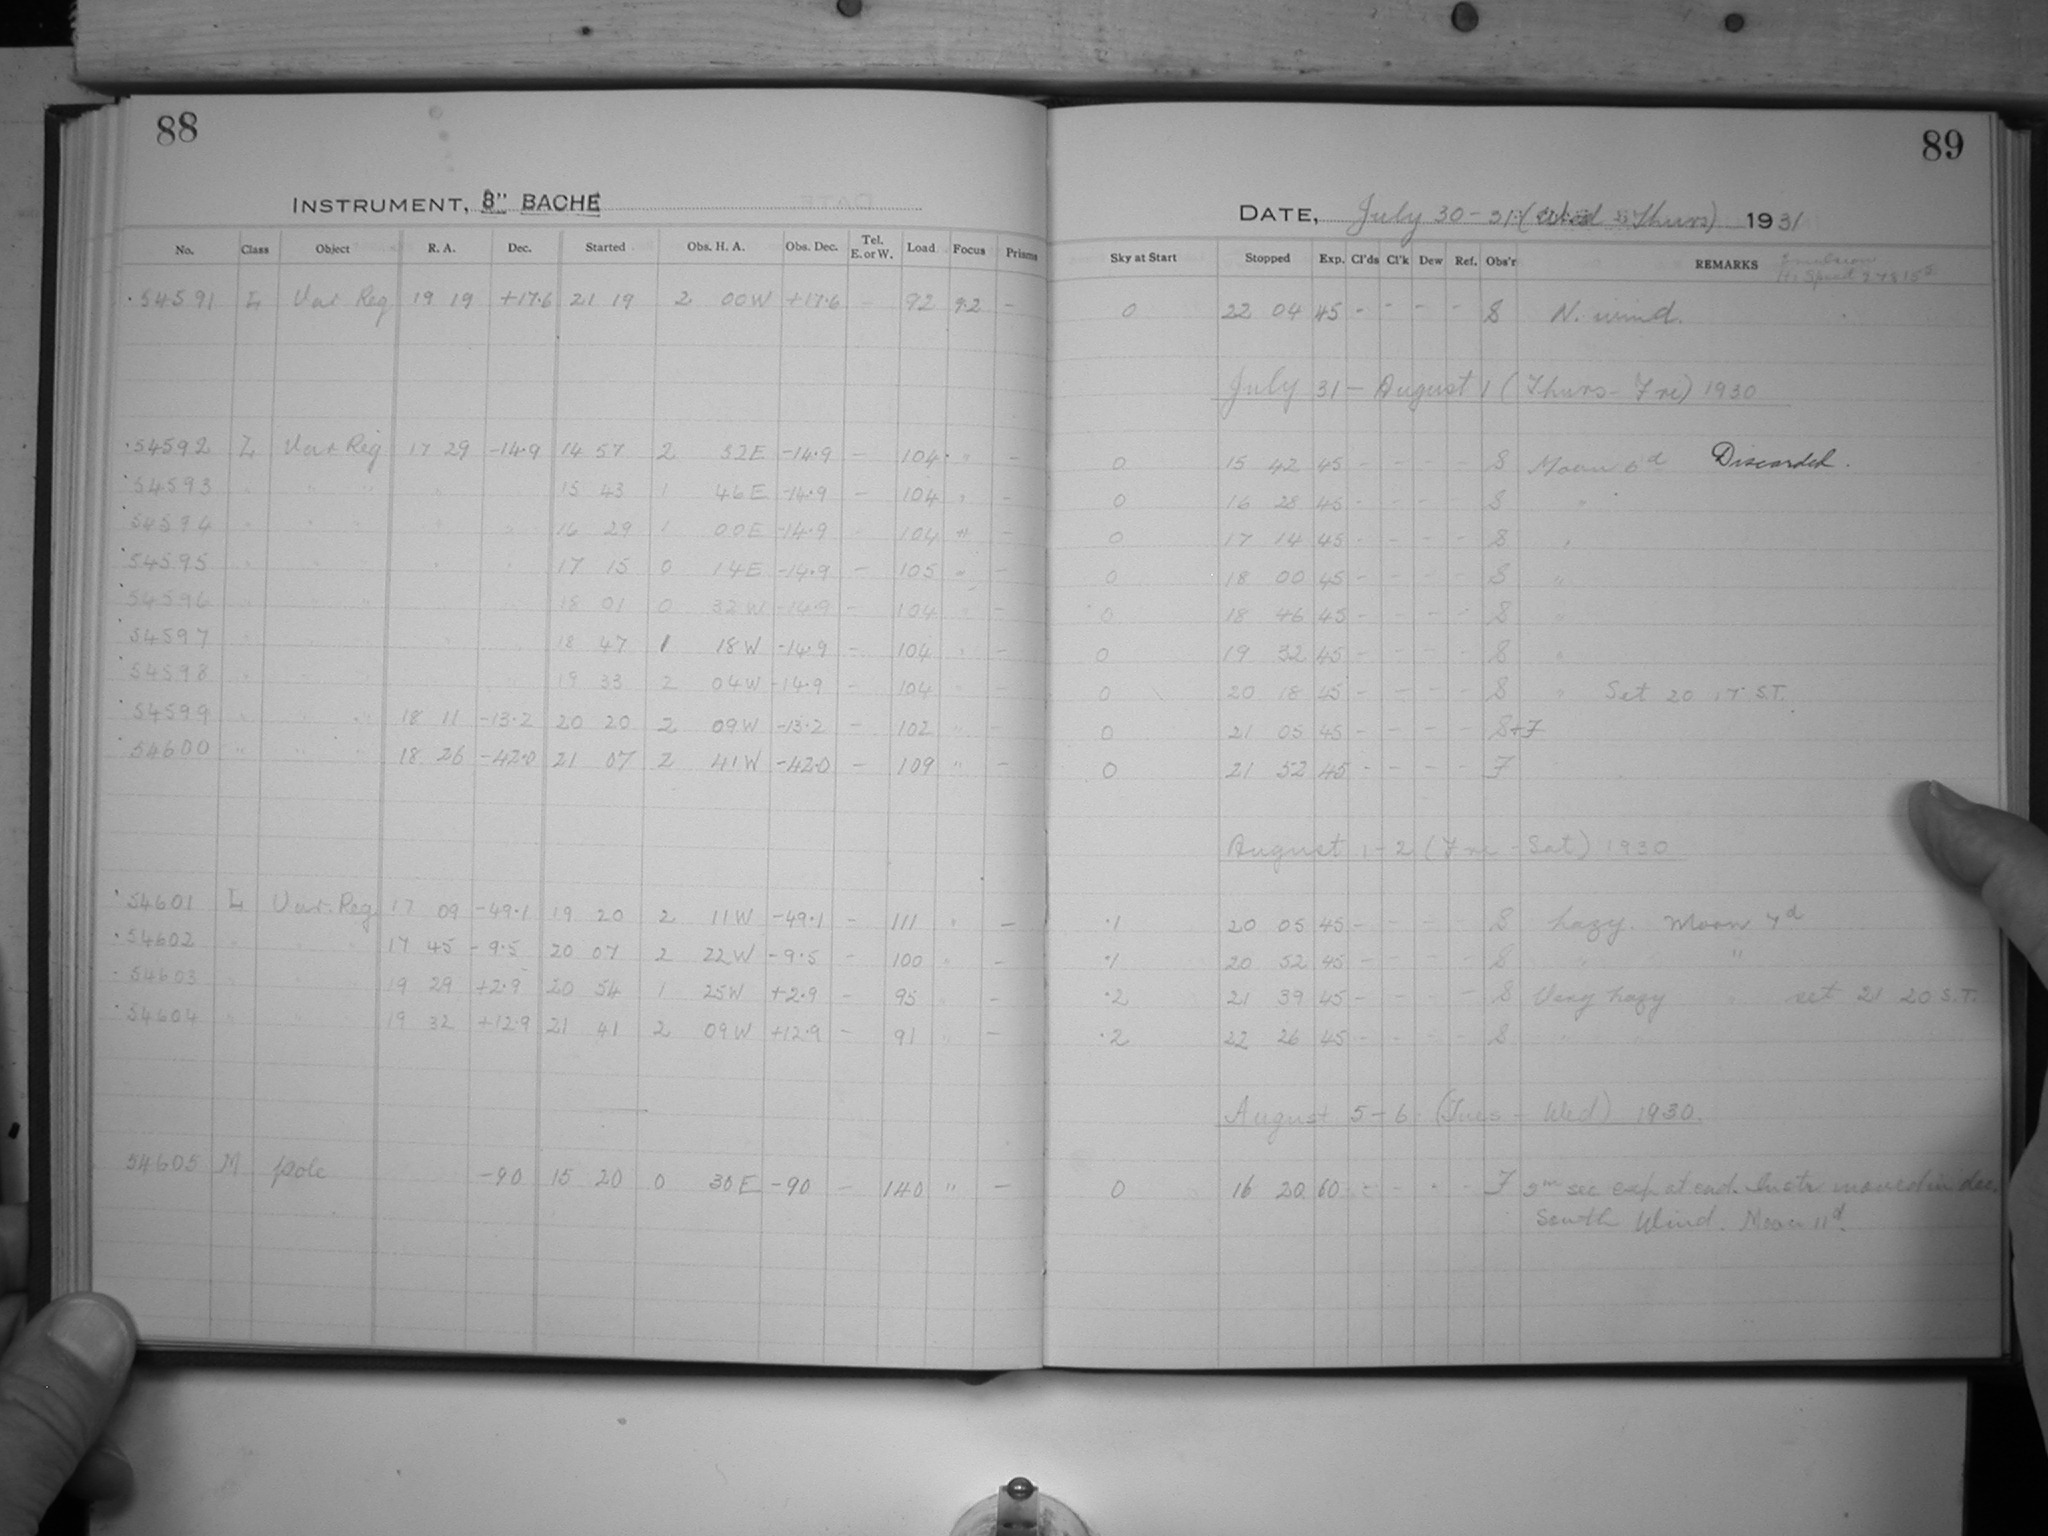 88
INSTRUMENT, 8" BACHE
No. Class Object R. A. Dec. Started Obs. H. A. Obs. Dec. Tel. E. or W. Load Focus Prisms
54591 L Var Reg 19 19 +17.6 21 19 2 00W +17.6 - 92 9.2 -
54592 L Var Reg 17 29 -14.9 14 57 2 32E -14.9 - 104 " -
54593 " " " " " 15 43 1 46E -14.9 - 104 " -
54594 " " " " " 16 29 1 00E -14.9 104 " -
54595 " " " " " 17 15 0 14E -14.9 - 105 " -
54596 " " " " " 18 01 0 32W -14.9 - 104 " -
54597 " " " " " 18 47 1 18W -14.9 - 104 " -
54598 " " " " " 19 33 2 04W -14.9 - 104 " -
54599 " " " 18 11 -13.2 20 20 2 09W -13.2 - 102 " -
54600 " " " 18 26 -42.0 21 07 2 41W -42.0 - 109 " -
54601 L Var. Reg. 17 09 -49.1 19 20 2 11W -49.1 - 111 " -
54602 " " " 17 45 -9.5 20 07 2 22W -9.5 - 100 " -
54603 " " " 19 29 +2.9 20 54 1 25W +2.9 - 95 " -
54604 " " " 19 32 +12.9 21 41 2 09W +12.9 - 91 " -
54605 M pole -90 15 20 0 30E -90 - 140 " -
89
DATE, July 30-31 (Wed - Thurs) 1931
Sky at Start Stopped Exp. Cl'ds Cl'k Dew Ref. Obs'r REMARKS Emulsion
Hi Speed
0 22 04 45 - - - - S N. wind.
July 31 - August 1 (Thurs - Fri) 1930
0 15 42 45 - - - - S Moon 6d Discarded.
0 16 28 45 - - - - S "
0 17 14 45 - - - - S "
0 18 00 45 - - - - S "
0 18 46 45 - - - - S "
0 19 32 45 - - - - S "
0 20 18 45 - - - - S " Set 20 17 S.T.
0 21 05 45 - - - - S+F
0 21 52 45 - - - - F
August 1-2 (Fri - Sat) 1930
.1 20 05 45 - - - - S hazy. Moon 7d
.1 20 52 45 - - - - S " "
.2 21 39 45 - - - - S Very hazy " set 21 20 S.T.
.2 22 26 45 - - - - S "
August 5-6 (Tues - Wed) 1930.
0 16 20 60 - - - - F sec exp at end. Instr moved in dec.
South Wind. Moon 11d.